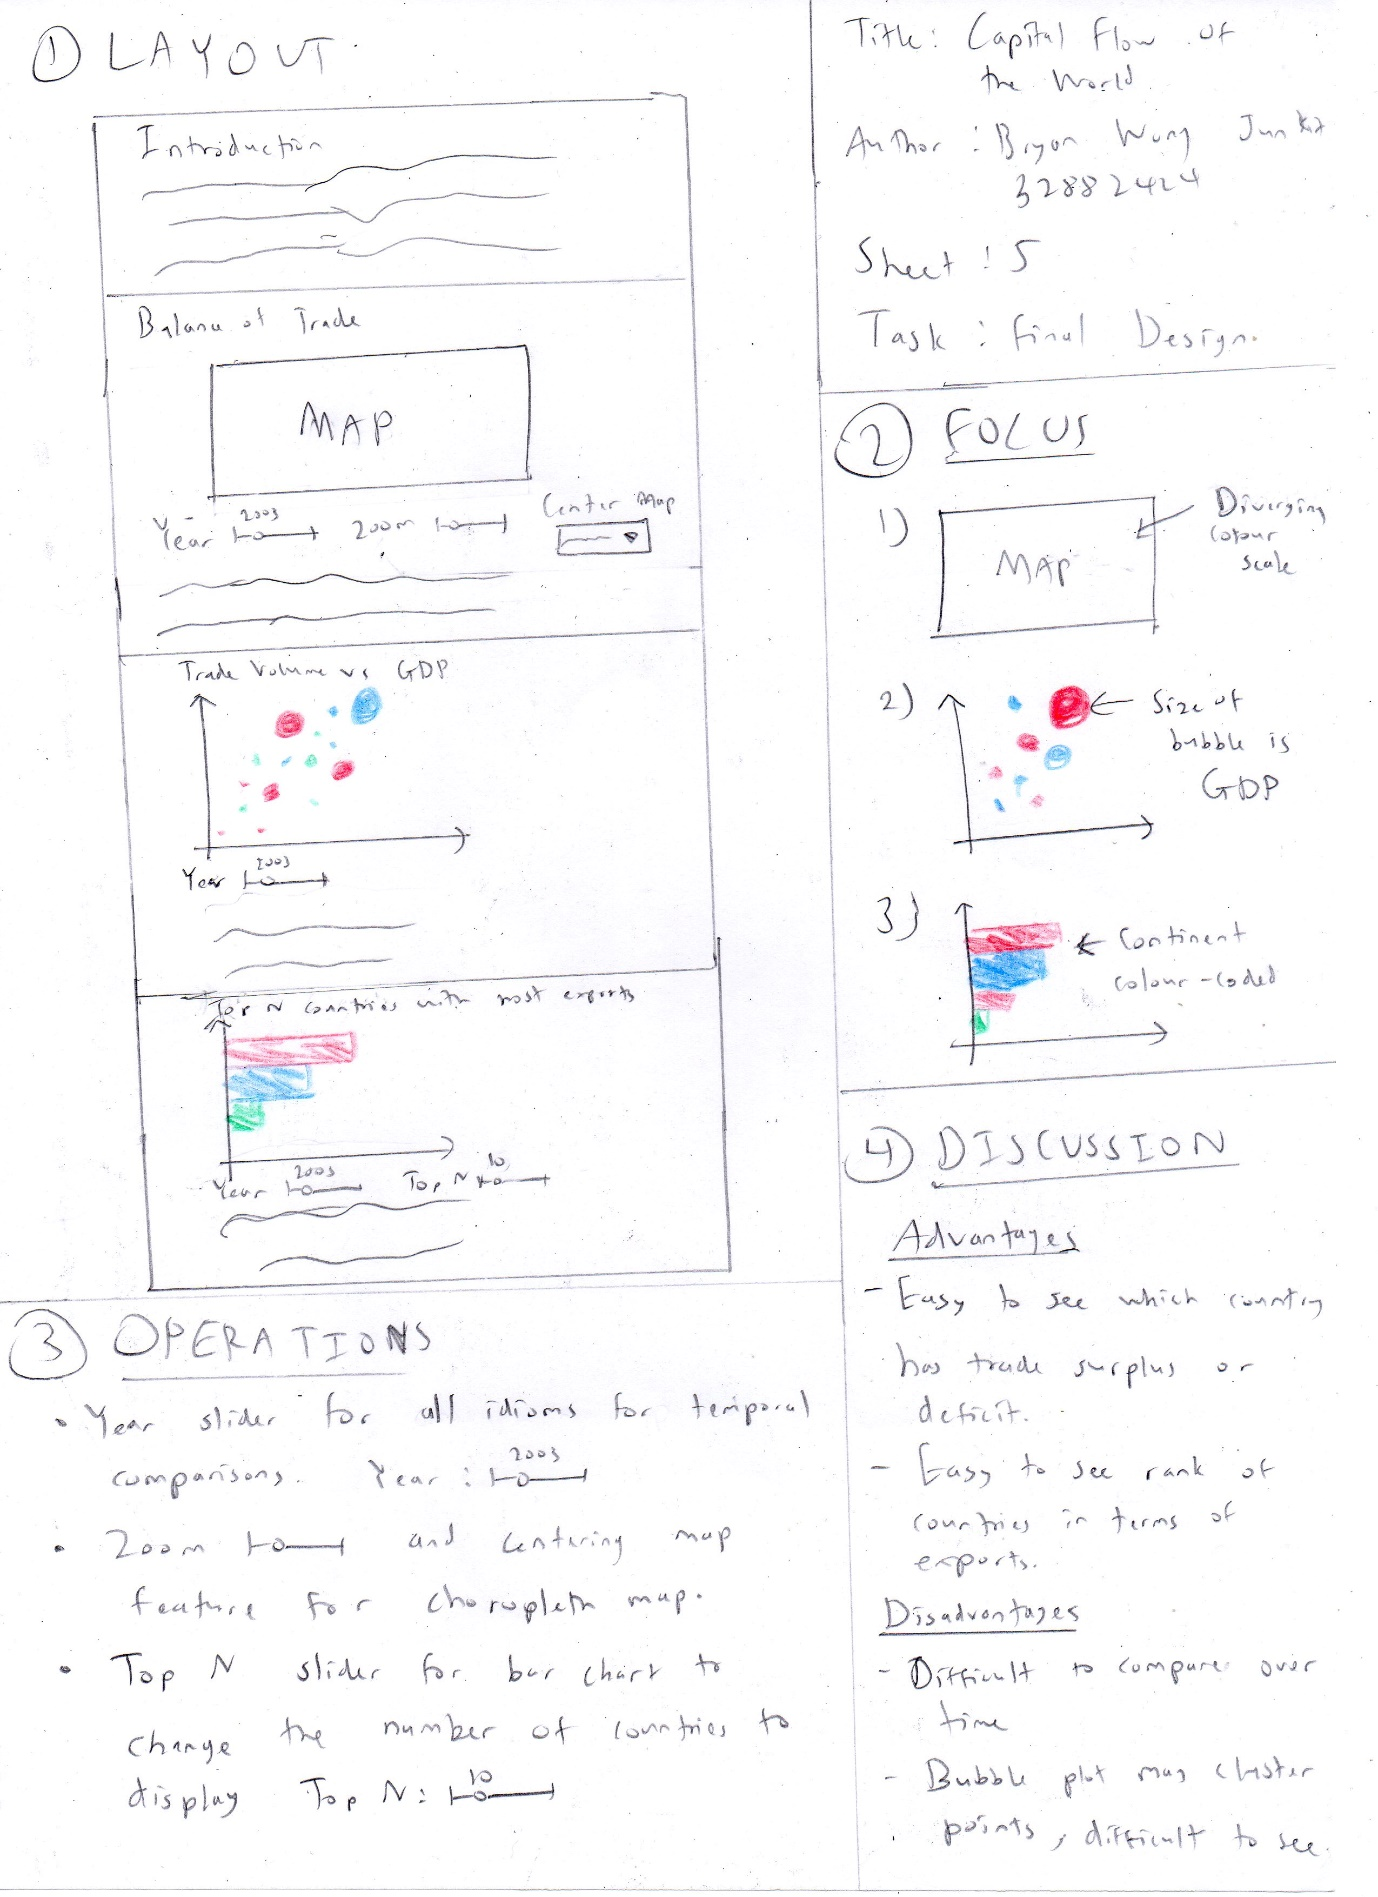 1 LAYOUT
Introduction
Balance of Trade
MAP
Year 2003 Zoom
Center Map
Trade Volume vs GDP
Year 2003
Top N countries with most exports
Year 2003 Top N 10
Title: Capital Flow of
the World
Author: Bryan Wong Jun Kit
32882424
Sheet: 5
Task: Final Design.
2 FOCUS
1) MAP
Diverging
colour
scale
2) Size of
bubble is
GDP
3) Continent
colour-coded
3 OPERATIONS
• Year slider for all idioms for temporal
comparisons. Year: 2003
• Zoom and centering map
feature for choropleth map.
• Top N slider for bar chart to
change the number of countries to
display Top N: 10
4 DISCUSSION
Advantages
- Easy to see which country
has trade surplus or
deficit.
- Easy to see rank of
countries in terms of
exports.
Disadvantages
- Difficult to compare over
time
- Bubble plot may cluster
points, difficult to see.